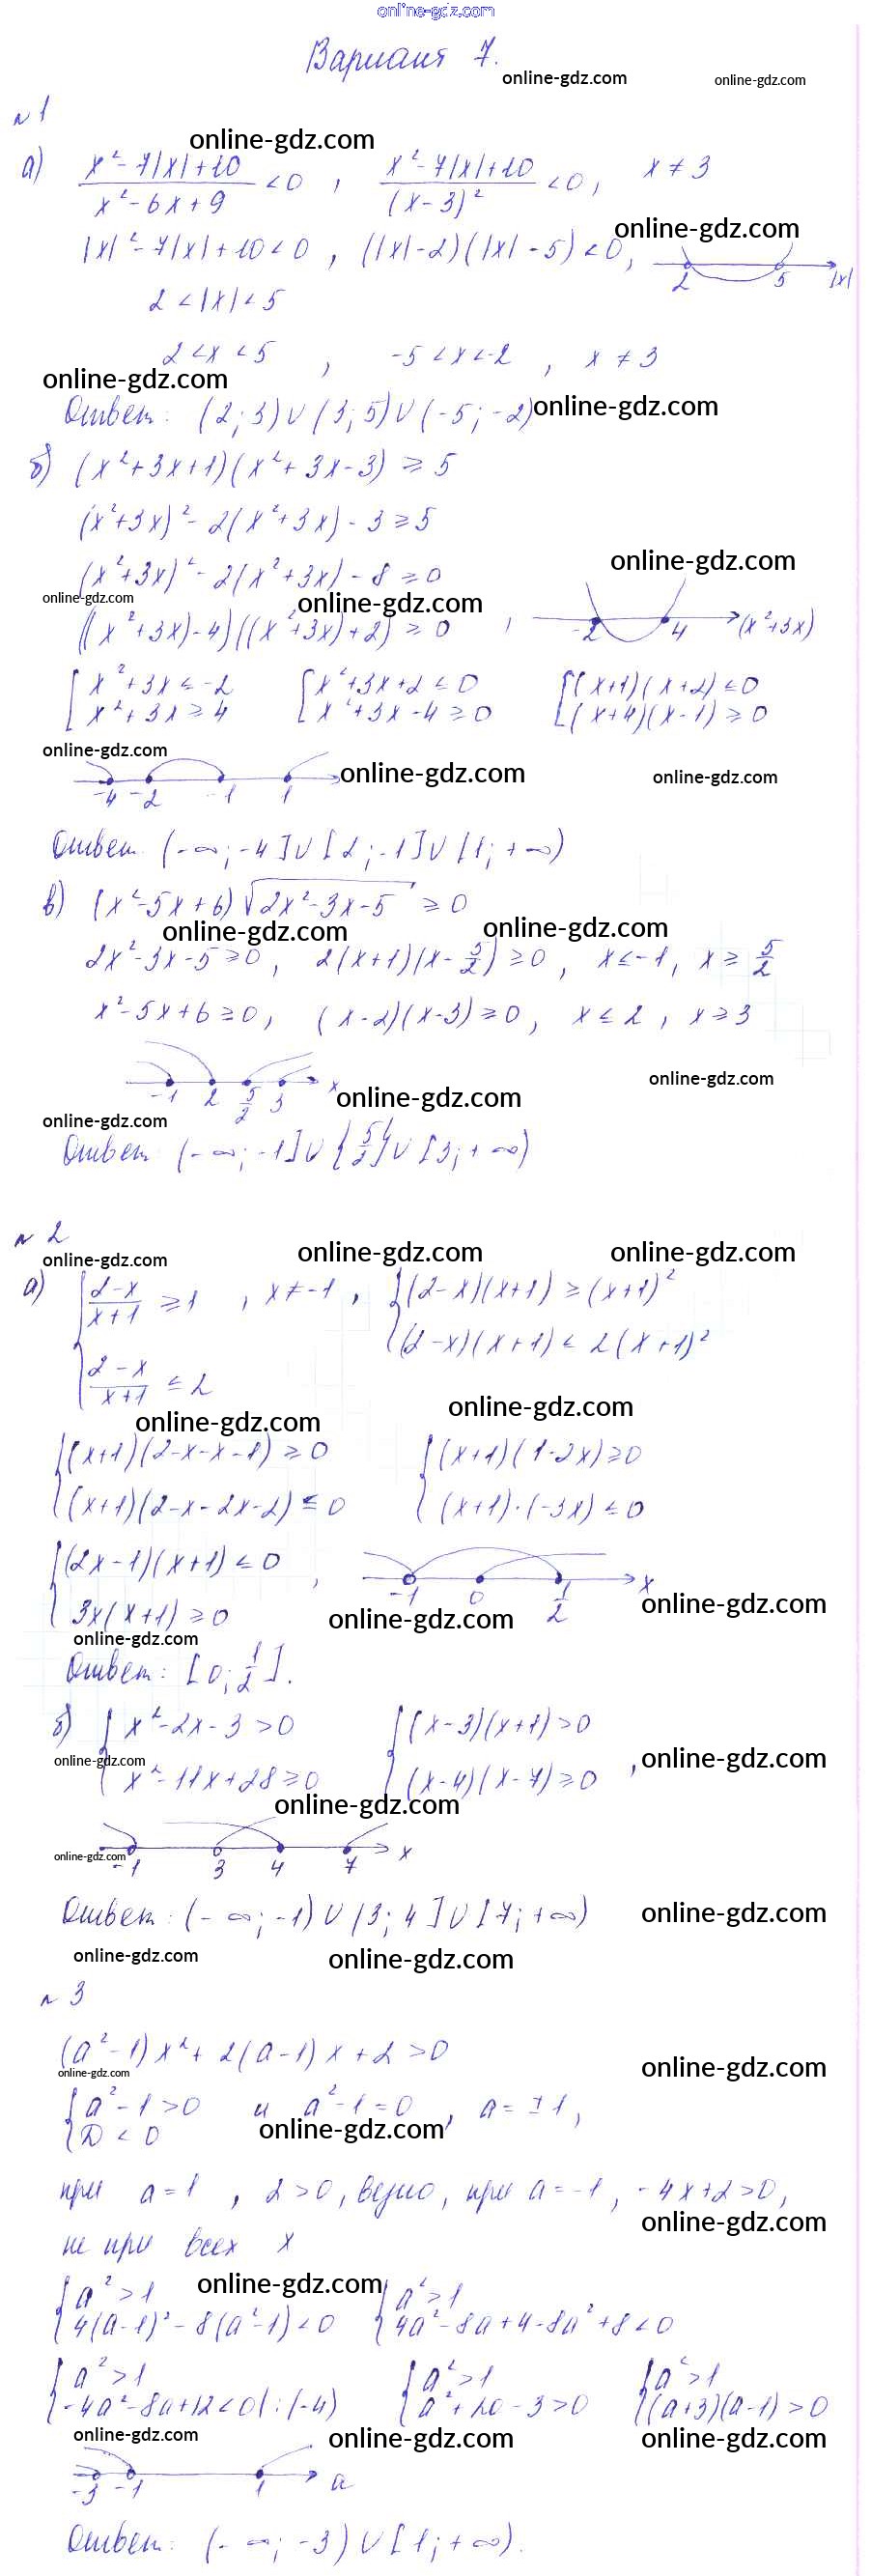 online-gdz.com
Вариант 7.
online-gdz.com online-gdz.com
№1
online-gdz.com
а) (x²-7|x|+10)/(x²-6x+9) <0 , (x²-7|x|+10)/(x-3)² <0, x≠3
online-gdz.com
|x|²-7|x|+10<0 , (|x|-2)(|x|-5)<0, 2 5 |x|
2<|x|<5
2<x<5 , -5<x<-2 , x≠3
online-gdz.com
Ответ: (2;3)∪(3;5)∪(-5;-2) online-gdz.com
б) (x²+3x+1)(x²+3x-3) ≥ 5
(x²+3x)²-2(x²+3x)-3≥5
online-gdz.com
(x²+3x)²-2(x²+3x)-8≥0
online-gdz.com online-gdz.com
((x²+3x)-4)((x²+3x)+2)≥0 , -2 4 (x²+3x)
[x²+3x≤-2 [x²+3x+2≤0 [(x+1)(x+2)≤0
[x²+3x≥4 [x²+3x-4≥0 [(x+4)(x-1)≥0
online-gdz.com
online-gdz.com online-gdz.com
-4 -2 -1 1
Ответ (-∞;-4]∪[2;-1]∪[1;+∞)
в) (x²-5x+6)√(2x²-3x-5) ≥0
online-gdz.com online-gdz.com
2x²-3x-5≥0, 2(x+1)(x-5/2)≥0, x≤-1, x≥5/2
x²-5x+6≥0, (x-2)(x-3)≥0, x≤2, x≥3
online-gdz.com
-1 2 5/2 3 x online-gdz.com
online-gdz.com
Ответ: (-∞;-1]∪{5/2}∪[3;+∞)
№2
online-gdz.com online-gdz.com online-gdz.com
а) {(2-x)/(x+1) ≥1 , x≠-1, {(2-x)(x+1)≥(x+1)²
{(2-x)/(x+1) ≤2 {(2-x)(x+1)≤2(x+1)²
online-gdz.com online-gdz.com
{(x+1)(2-x-x-1)≥0 {(x+1)(1-2x)≥0
{(x+1)(2-x-2x-2)≤0 {(x+1)·(-3x)≤0
{(2x-1)(x+1)≤0 , -1 0 1/2 x
{3x(x+1)≥0 online-gdz.com online-gdz.com
online-gdz.com
Ответ: [0;1/2].
б) {x²-2x-3>0 {(x-3)(x+1)>0
online-gdz.com online-gdz.com
{x²-11x+28≥0 {(x-4)(x-7)≥0 ,
online-gdz.com
online-gdz.com -1 3 4 7 x
Ответ: (-∞;-1)∪(3;4]∪[7;+∞) online-gdz.com
online-gdz.com online-gdz.com
№3
(a²-1)x²+2(a-1)x+2>0
online-gdz.com online-gdz.com
{a²-1>0 и a²-1=0, a=±1,
{D<0 online-gdz.com
при a=1 , 2>0, верно, при a=-1, -4x+2>0,
online-gdz.com
не при всех x
online-gdz.com
{a²>1 {a²>1
{4(a-1)²-8(a²-1)<0 {4a²-8a+4-8a²+8<0
{a²>1 {a²>1 {a²>1
{-4a²-8a+12<0|:(-4) {a²+2a-3>0 {(a+3)(a-1)>0
online-gdz.com online-gdz.com online-gdz.com
-3 -1 1 a
Ответ: (-∞;-3)∪[1;+∞).